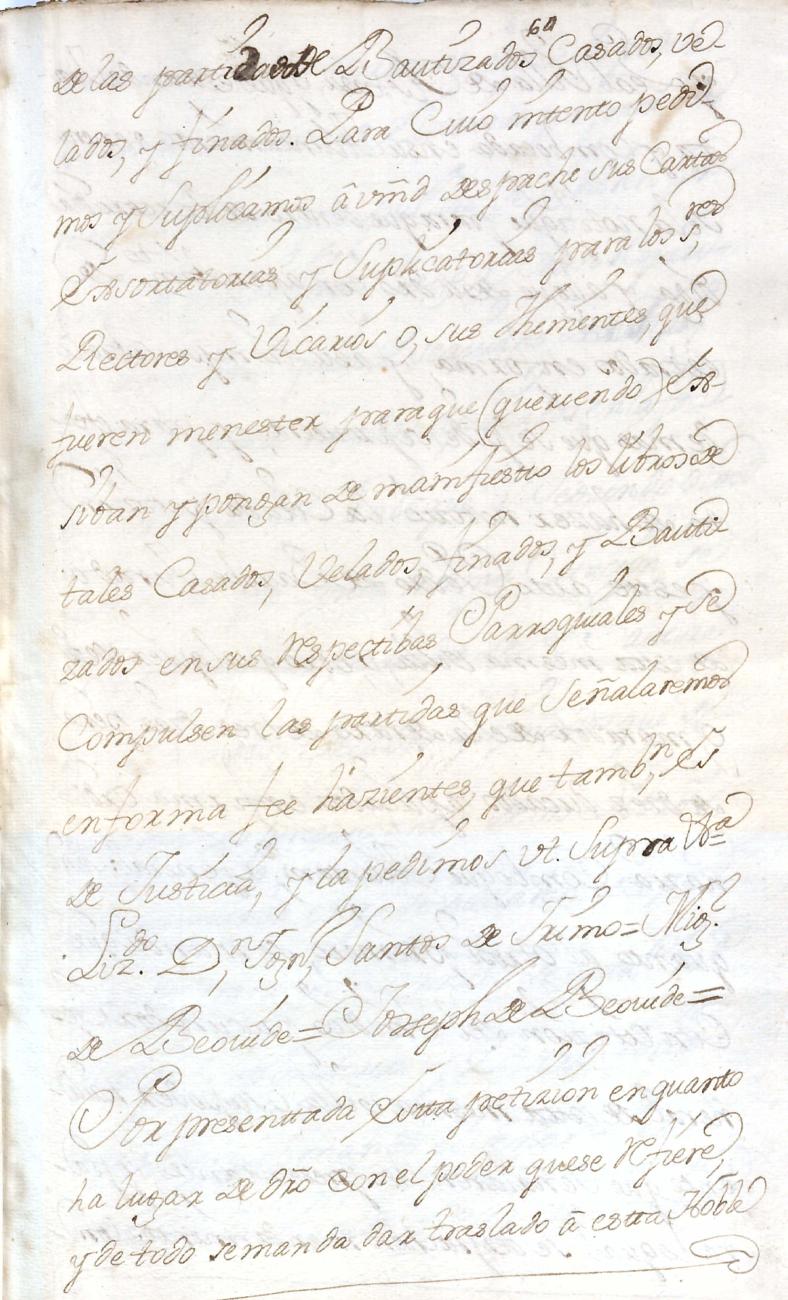 60
de las partidas de Bautizados Casados, ve-
lados, y finados. Para Cuio intento pedi-
mos y Suplicamos â vmd despache sus Cartas
Exsortatorias y Suplicatorias para los s,res
Rectores y Vicarios o, sus thenientes, que
fueren menester para que (queriendo) Ex-
siban y pongan de manifiesto los libros de
tales Casados, Velados finados, y Bauti
zados en sus respectibas Parroquiales y Se
Compulsen las partidas que señalaremos
en forma fee hazientes, que tamb,n es
de Justicia, y la pedimos vt. Supra
Liz.do D,n Santos de = Mig.l
de Beouide = Joseph de Beouide =
Por presenttada Estta petizion en quanto
ha lugar de dro con el poder que se refiere,
y de todo se manda dar traslado â estta Noble